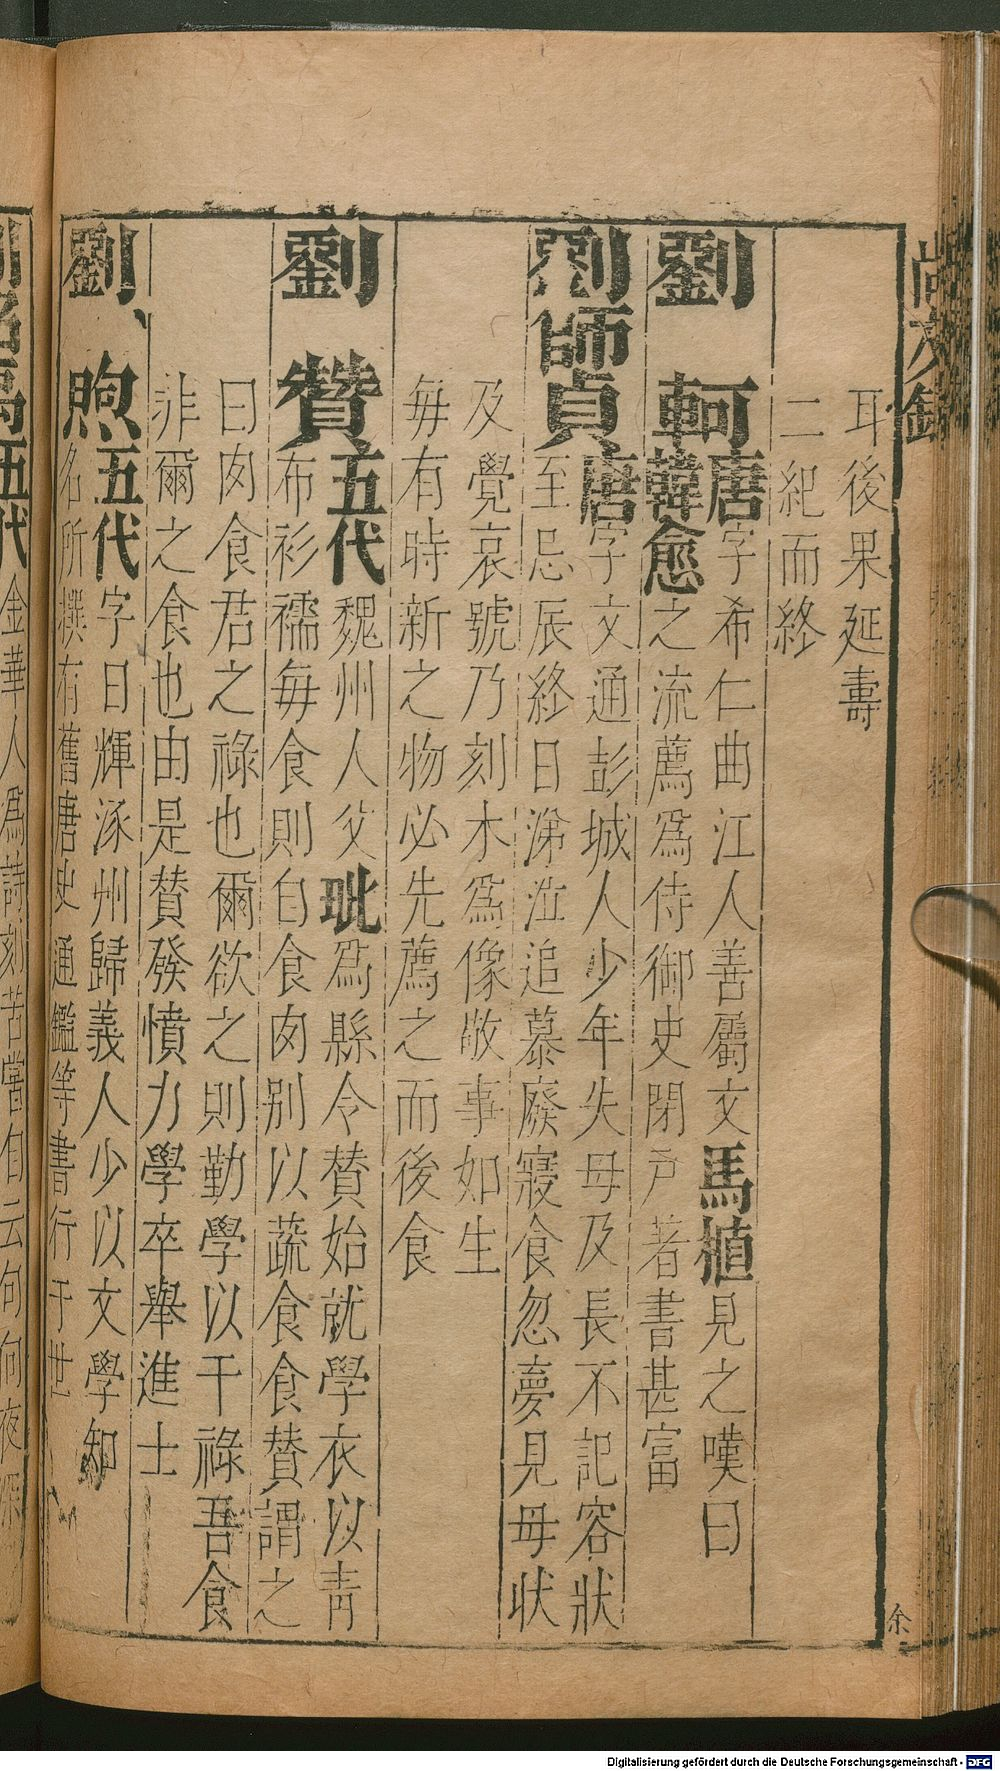 耳後果延壽
二紀而終
劉 軻唐字希仁曲江人善屬文馬植見之嘆曰
韓愈之流薦爲侍御史閉戸著書甚富
劉師貞唐字文通彭城人少年失母及長不記容狀
至忌辰終日涕泣追慕廢寢食忽夢見母状
及覺哀號乃刻木爲像敬事如生
毎有時新之物必先薦之而後食
劉 贊五代魏州人父玭爲縣令贊始就學衣以青
布衫襦毎食則自食肉别以蔬食食贊謂之
曰肉食君之祿也爾欲之則勤學以干祿吾食
非爾之食也由是贊發憤力學卒舉進士
劉 煦五代字日輝涿州歸義人少以文學知
名所撰有舊唐史通鑑等書行于世
五代金華人爲詩刻苦嘗自云句句夜深
尚友録
余
Digitalisierung gefördert durch die Deutsche Forschungsgemeinschaft - DFG